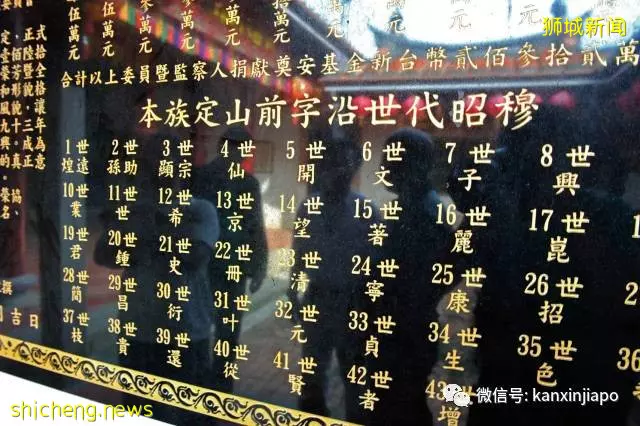 狮城新闻
伍萬元
萬元
參萬元
萬元
拾萬元
萬元
合計以上委員暨監察人捐獻奠安基金新台幣貳佰參拾貳萬
本族定山前字沿世代昭穆
1世 2世 3世 4世 5世 6世 7世 8世
煌遠 孫助 顯宗 仙 開 文 子 興
10世 11世 12世 13世 14世 15世 16世 17世
業 世 希 京 望 著 麗 崑
19世 20世 21世 22世 23世 24世 25世 26世
君 鍾 史 冊 清 寧 康 招
28世 29世 30世 31世 32世 33世 34世 35世
簡 昌 衍 叶 元 貞 生 色
37世 38世 39世 40世 41世 42世 43世
枝 貴 還 從 賢 者 增
吉日
微信号: kanxinjiapo
shicheng.news